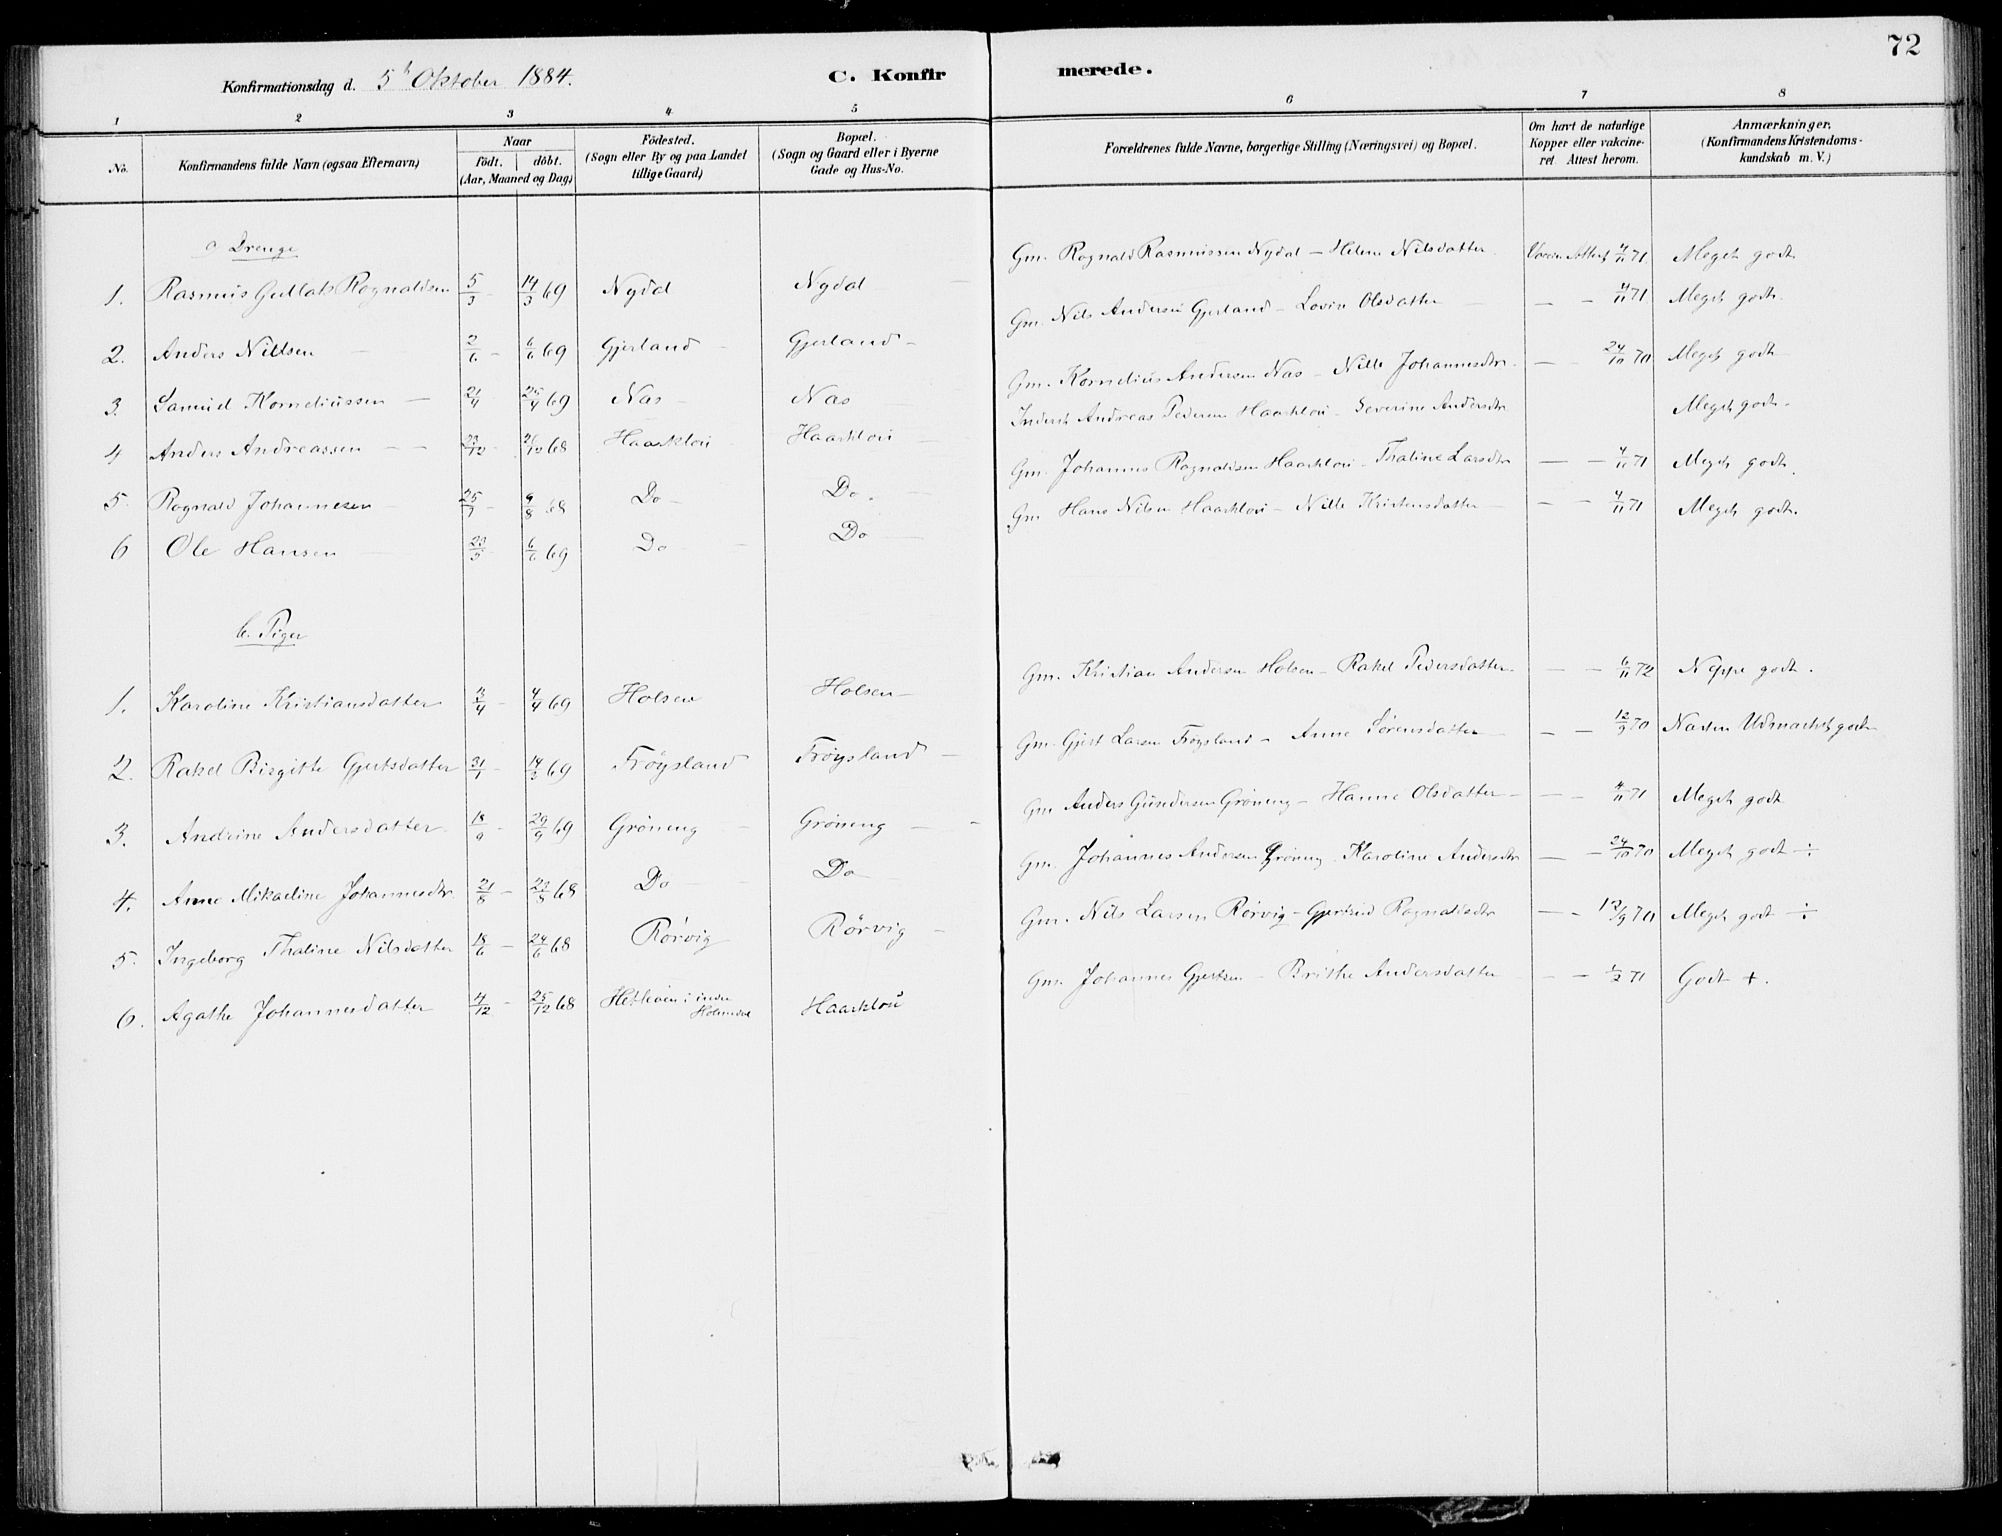 72
Konfirmationsdag d. 5te Oktober 1884. C. Konfirmerede.
1 2 3 4 5 6 7 8
No. Konfirmandens fulde Navn (ogsaa Efternavn) Naar födt. döbt. (Aar, Maaned og Dag) Födested. (Sogn eller By og paa Landet tillige Gaard) Bopæl. (Sogn og Gaard eller i Byerne Gade og Hus-No. Forældrenes fulde Navne, borgerlige Stilling (Næringsvei) og Bopæl. Om havt de naturlige Kopper eller vakcineret Attest herom. Anmærkninger. (Konfirmandens Kristendomskundskab m. V.)
a Drenge
1. Rasmus Gullak Rognaldsen 5/3 - 14/3 69 Nydal Nydal Gm. Rognald Rasmussen Nydal - Helene Nilsdatter Vaccin Attest 4/11 71 Meget godt
2. Anders Nillsen 2/6 - 6/6 69 Gjerland Gjerland - Gm. Nils Andersen Gjerland - Lovise Olsdatter - - 4/11 71 Meget godt.
3. Samuel Korneliussen 21/4 25/4 69 Nas - Nas Gm. Kornelius Andersen Nas - Nille Johannesdtr. - 24/10 70 Meget godt
4 Anders Andreassen 23/12 26/12 68 Haarklou Haarklou Inderst Andreas Pedersen Haarklou - Severine Andersdtr Meget godt.
5. Rognald Johannesen 25/7 - 9/8 68 Do - Do. Gm. Johannes Rognaldsen Haarklou - Thaline Larsdtr - - 4/11 71 Meget godt.
6 Ole Hansen 23/5 6/6 69 Do Do Gm Hans Nilsen Haarklou - Nille Kristensdatter - - 4/11 71 Meget godt.
b. Piger
1. Karoline Kristiansdatter 3/4 - 4/4 69 Holsen Holsen - Gm. Kristian Andersen Holsen - Rakel Pedersdatter - - 6/11 72 Neppe godt.
2. Rakel Birgitte Gjertsdatter 31/1 - 14/3 69 Frøysland Frøysland - Gm. Gjert Larsen Frøysland - Anne Sørensdatter - - 12/9 70 Næsten Udmærket godt
3. Andrine Andersdatter 18/9 - 29/9 69 Grøneng - Grøneng - - Gm Anders Gundersen Grøneng - Hanne Olsdatter - - - 4/11 71 Meget godt
4. Anne Mikaeline Johannesdtr. 21/8 - 23/8 68 Do - Do - Gm. Johannes Andersen Grøneng - Karoline Andersdtr - - 24/10 70 Meget godt ÷
5. Ingeborg Thaline Nilsdatter 18/6 - 24/6 68 Rørvig Rørvig - Gm. Nils Larsen Rørvig - Gjertrud Rognaldsdtr - - 12/9 70 Meget godt ÷
6. Agathe Johannesdatter 4/12 - 25/12 68 i indre Holmedal Haarklou Gm. Johannes Gjertsen - Brithe Andersdatter - - 1/2 71 Godt +.